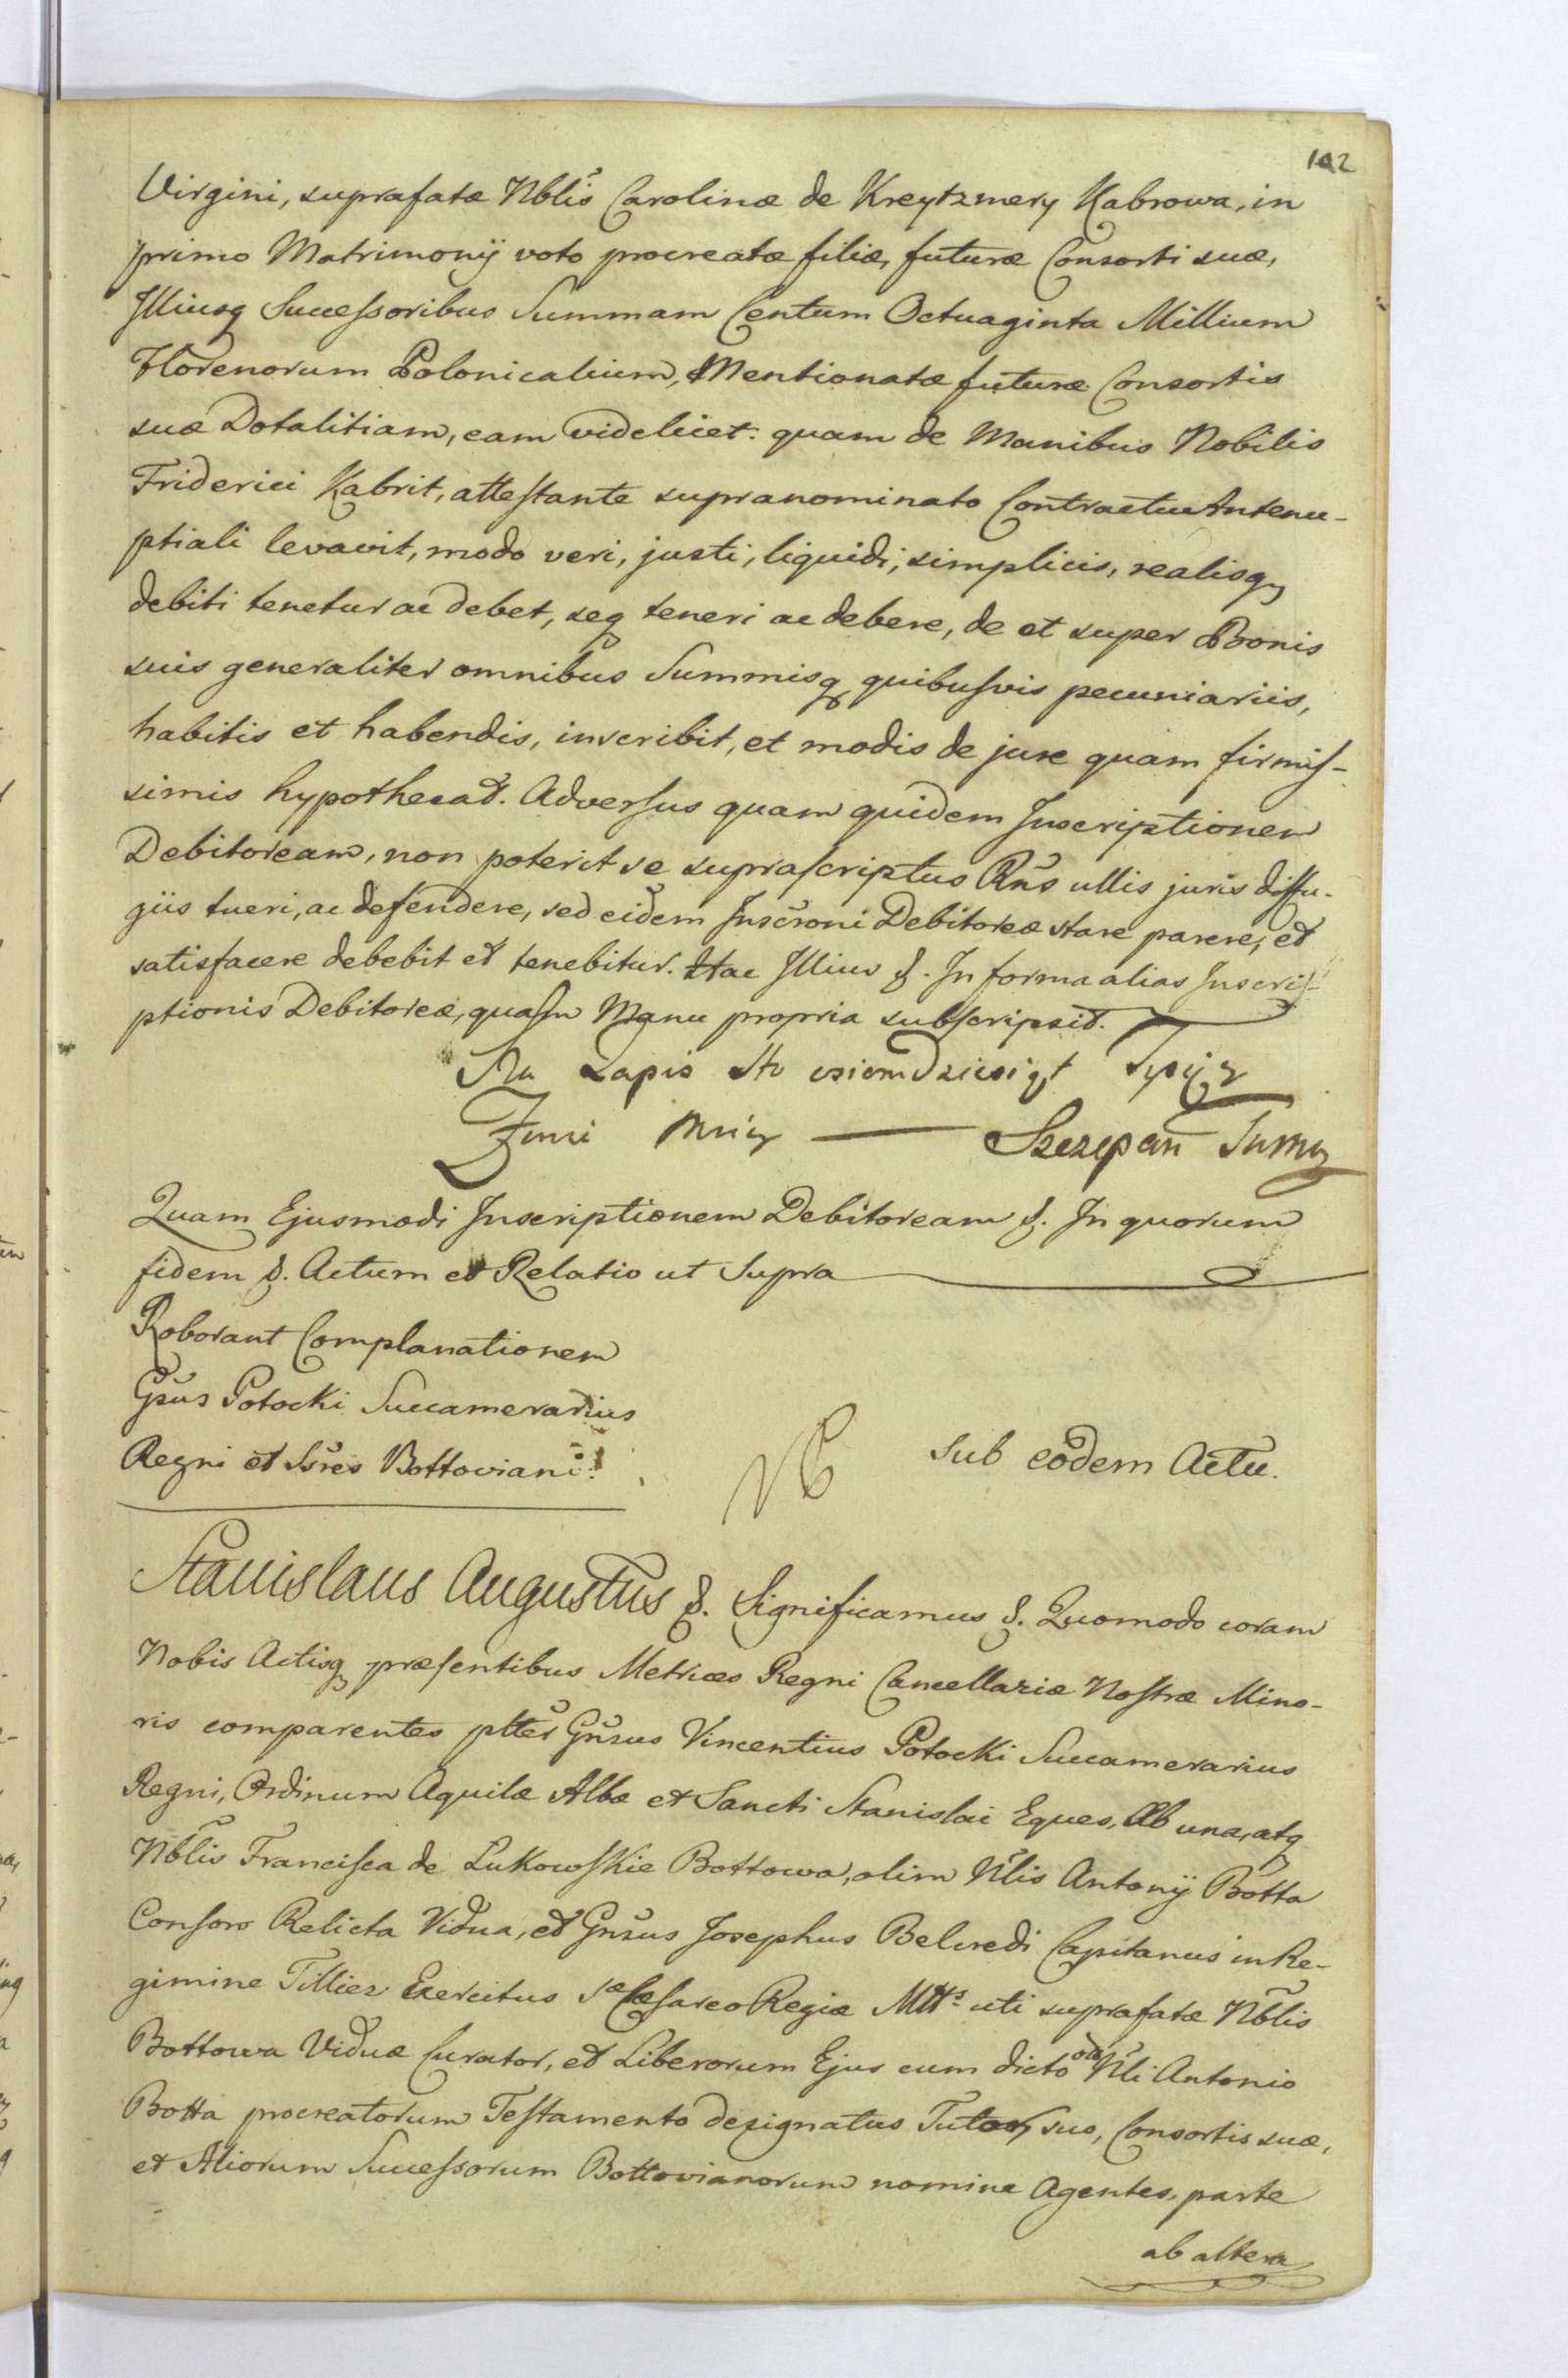 102
Virgini, suprafatæ Nblis Carolinæ de Kreytzmery Kabrowa, in
primo Matrimonÿ voto procreatæ filiæ, futuræ Consorti suæ,
Illiusq Succeſsoribus Summam Centum Octuaginta Millium
Florenorum Polonicalium, Mentionatæ futuræ Consortis
suæ Dotalitiam, eam videlicet: quam de Manibus Nobilis
Friderici Kabrit, atteſtante supranominato Contractu Antenu-
ptiali levavit, modo veri, justi, liquidi, simplicis, realisq
debiti tenetur ac debet, seq teneri ac debere, de et super Bonis
suis generaliter omnibus Summisq quibuſvis pecuniariis,
habitis et habendis, inscribit, et modis de jure quam firmiſ-
simis hypothecat. Adverſus quam quidem Inscriptionem
Debitoream, non poterit se supraſcriptus Rns ullis juris diffu-
giis tueri, ac defendere, sed eidem Inscroni Debitoreæ stare parere, et
satisfacere debebit et tenebitur. Hac Illius &. In forma alias Inscri-
ptionis Debitoreæ, quaſm Manu propria subſcripsit.
Na Zapis Sto osiemdziesiąt Tysięz
Szczepan
Quam Ejusmodi Inscriptionem Debitoream &. In quorum
fidem &. Actum et Relatio ut Supra
Roborant Complanationem
Gsus Potocki Succamerarius
Regni et Ssres Bottoviani.
Sub eodem Actu.
Stanislaus Augustus &. Significamus &. Quomodo coram
Nobis Actisq præſentibus Metrices Regni Cancellariæ Noſtræ Mino-
ris comparentes pltes Gnsus Vincentius Potocki Succamerarius
Regni, Ordinum Aquilæ Albæ et Sancti Stanislai Eques, Ab una, atq
Nblis Franciſca de Lukowſkie Bottowa, olim Nlis Antonÿ Botta
Conſors Relicta Vidua, et Gnsus Josephus Belcredi Capitaneus in Re-
gimine Tillier Exercitus Sæ Cæſareo Regiæ Mtts uti suprafatæ Nblis
Bottowa Viduæ Curator, et Liberorum Ejus cum dicto olim Nli Antonio
Botta procreatorum Teſtamento designatus Tutor, suo, Consortis suæ,
et Aliorum Succeſsorum Bottovianorum nomine Agentes, parte
ab altera